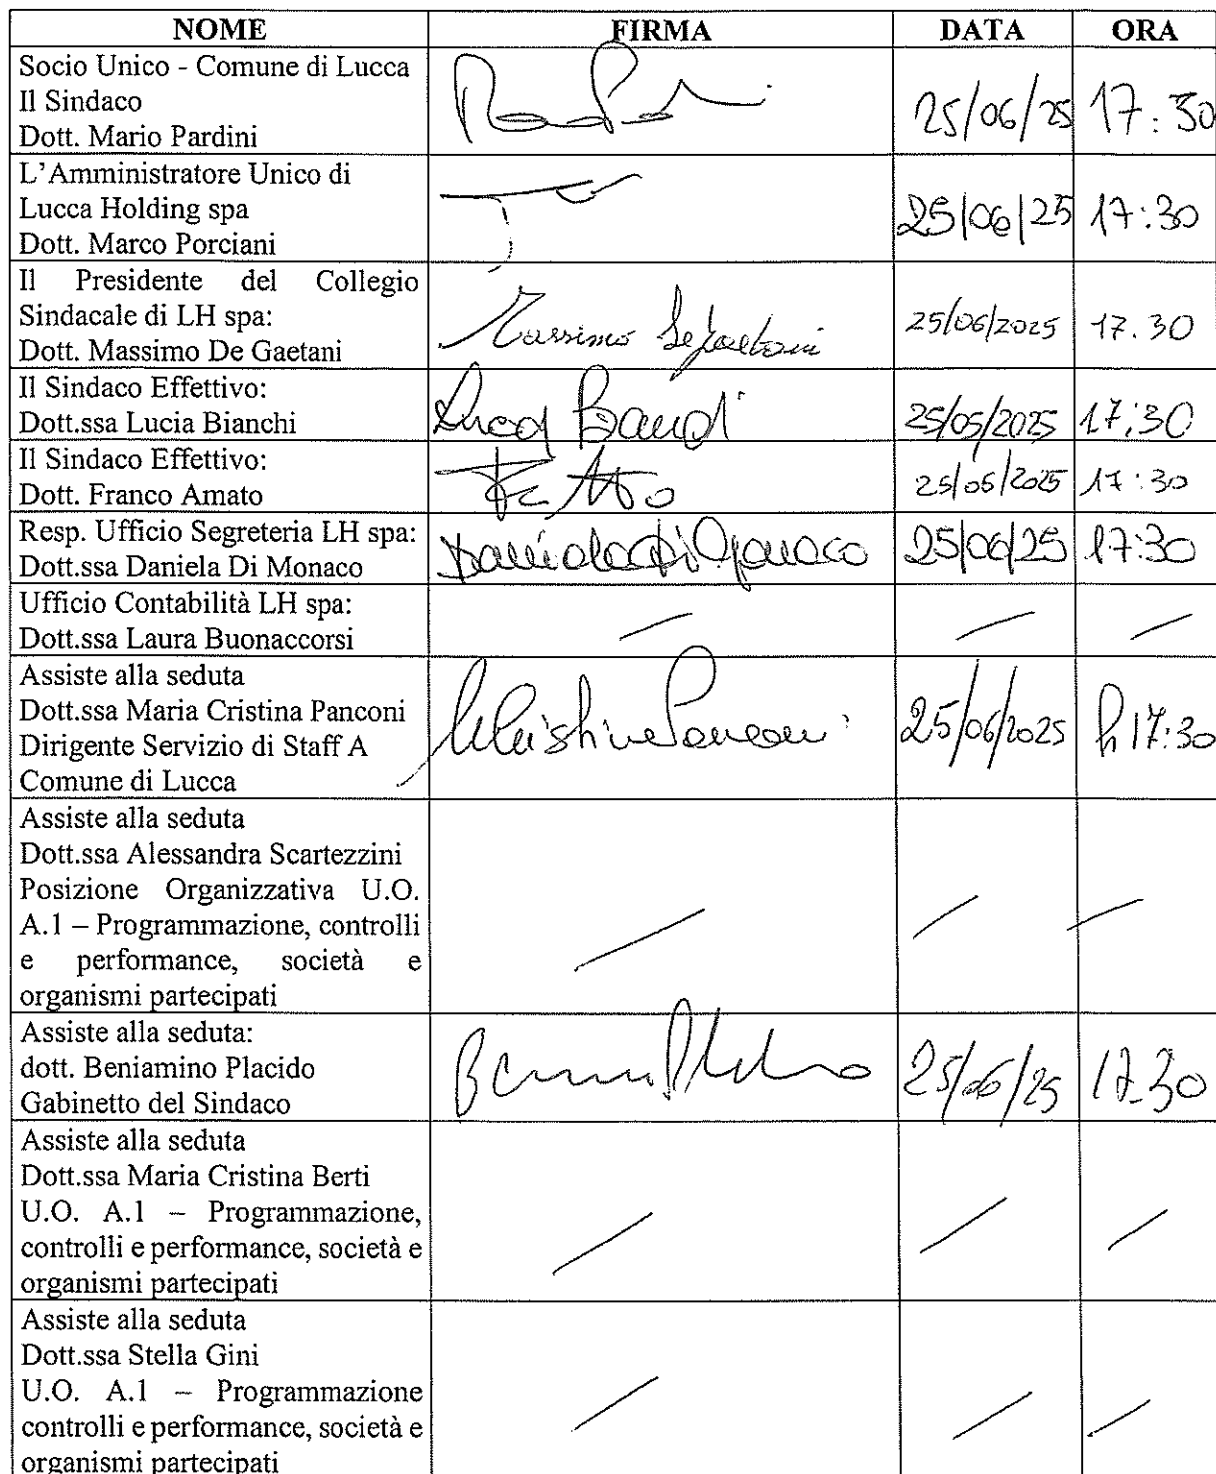 NOME FIRMA DATA ORA
Socio Unico - Comune di Lucca
Il Sindaco
Dott. Mario Pardini 25/06/25 17:30
L'Amministratore Unico di
Lucca Holding spa
Dott. Marco Porciani 25/06/25 17:30
Il Presidente del Collegio
Sindacale di LH spa:
Dott. Massimo De Gaetani Massimo De Gaetani 25/06/2025 17.30
Il Sindaco Effettivo:
Dott.ssa Lucia Bianchi 25/05/2025 17:30
Il Sindaco Effettivo:
Dott. Franco Amato 25/06/2025 17:30
Resp. Ufficio Segreteria LH spa:
Dott.ssa Daniela Di Monaco Daniela Di Monaco 25/06/25 17:30
Ufficio Contabilità LH spa:
Dott.ssa Laura Buonaccorsi
Assiste alla seduta
Dott.ssa Maria Cristina Panconi
Dirigente Servizio di Staff A 25/06/2025 h 17:30
Comune di Lucca
Assiste alla seduta
Dott.ssa Alessandra Scartezzini
Posizione Organizzativa U.O.
A.1 – Programmazione, controlli
e performance, società e
organismi partecipati
Assiste alla seduta:
dott. Beniamino Placido
Gabinetto del Sindaco 25/06/25 17.30
Assiste alla seduta
Dott.ssa Maria Cristina Berti
U.O. A.1 – Programmazione,
controlli e performance, società e
organismi partecipati
Assiste alla seduta
Dott.ssa Stella Gini
U.O. A.1 – Programmazione
controlli e performance, società e
organismi partecipati